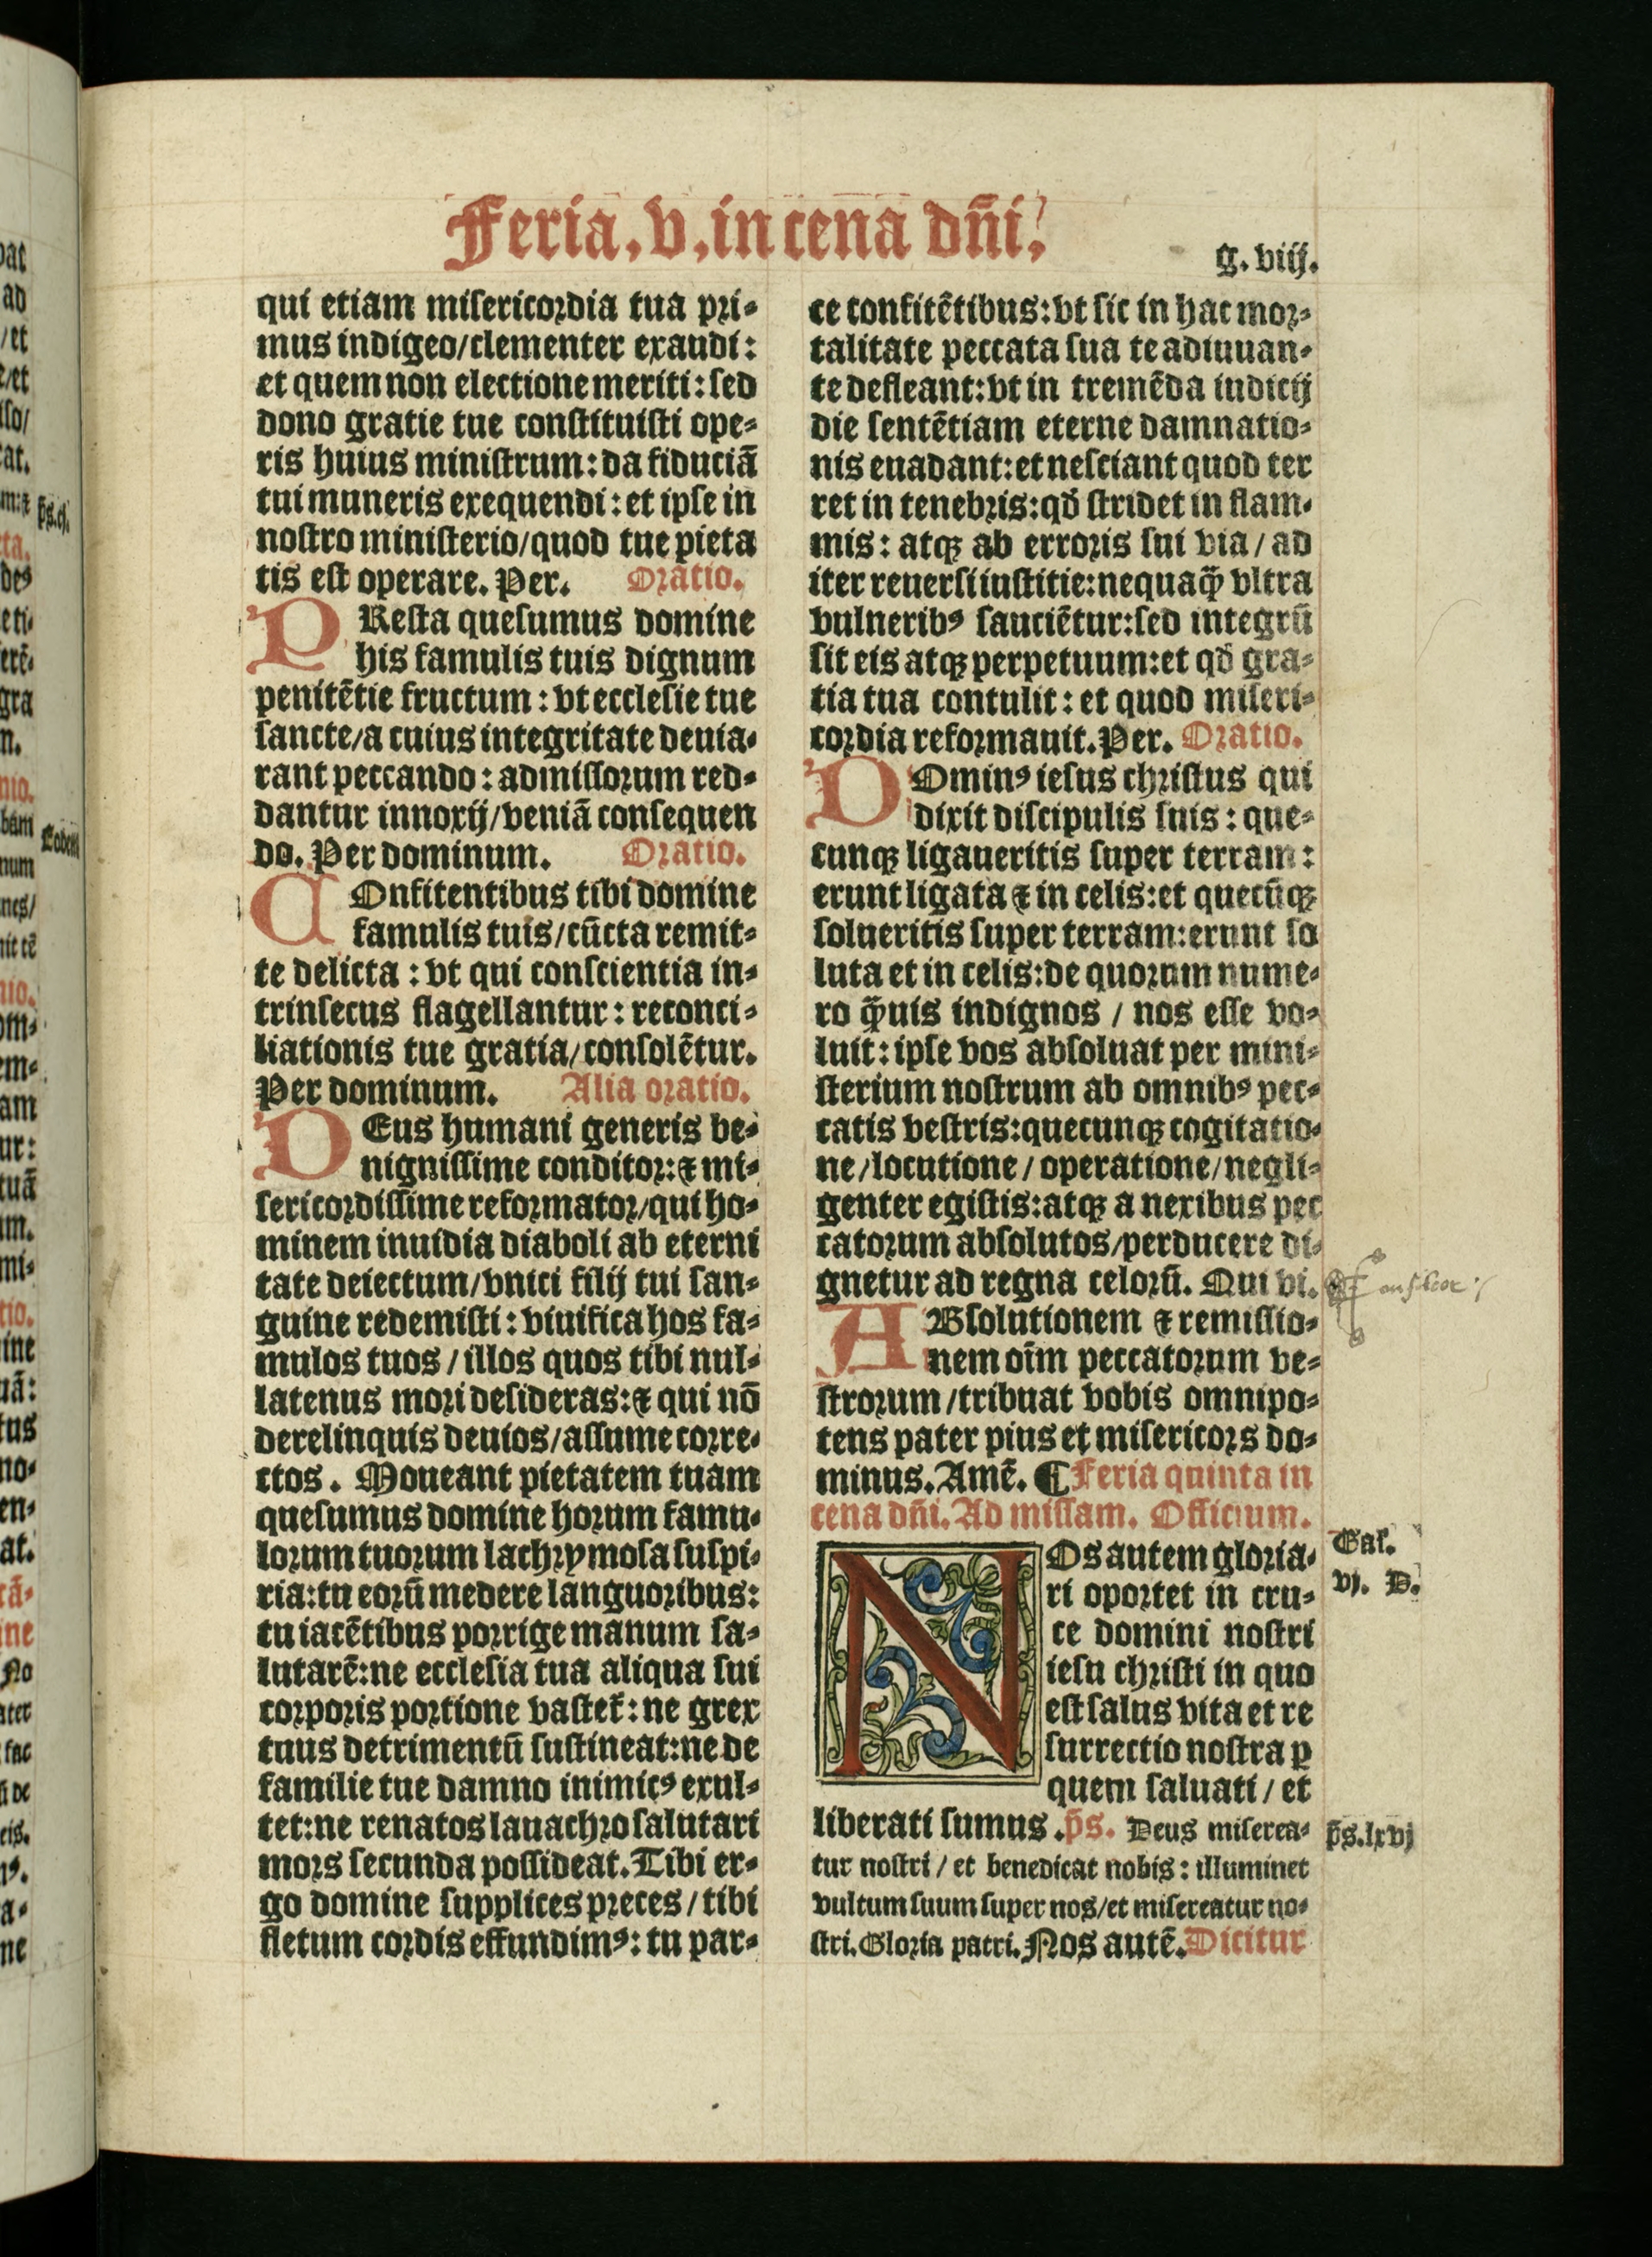 Feria. v. in cena dñi.
g. viij.
qui etiam misericordia tua pri-
mus indigeo/clementer exaudi:
et quem non electione meriti: sed
dono gratie tue constituisti ope-
ris huius ministrum: da fiduciā
tui muneris exequendi: et ipse in
nostro ministerio/quod tue pieta
tis est operare. Per. Oratio.
PResta quesumus domine
his famulis tuis dignum
penitētie fructum: vt ecclesie tue
sancte/a cuius integritate deuia-
rant peccando: admissorum red-
dantur innoxij/veniā consequen
do. Per dominum. Oratio.
COnfitentibus tibi domine
famulis tuis/cūcta remit-
te delicta: vt qui conscientia in-
trinsecus flagellantur: reconci-
liationis tue gratia/consolētur.
Per dominum. Alia oratio.
DEus humani generis be-
nignissime conditor: ⁊ mi-
sericordissime reformator/qui ho-
minem inuidia diaboli ab eterni
tate deiectum/vnici filij tui san-
guine redemisti: viuifica hos fa-
mulos tuos/illos quos tibi nul-
latenus mori desideras: ⁊ qui nō
derelinquis deuios/assume corre-
ctos. Moueant pietatem tuam
quesumus domine horum famu-
lorum tuorum lachrymosa suspi-
ria: tu eorū medere languoribus:
tu iacētibus porrige manum sa-
lutarē: ne ecclesia tua aliqua sui
corporis portione vastet᷑: ne grex
tuus detrimentū sustineat: ne de
familie tue damno inimicꝰ exul-
tet: ne renatos lauachro salutari
mors secunda possideat. Tibi er-
go domine supplices preces/tibi
fletum cordis effundimꝰ: tu par-
ce confitētibus: vt sic in hac mor-
talitate peccata sua te adiuuan-
te defleant: vt in tremēda iudicij
die sentētiam eterne damnatio-
nis euadant: et nesciant quod ter
ret in tenebris: qđ stridet in flam-
mis: atqꝫ ab erroris sui via/ad
iter reuersi iustitie: nequaq̄ vltra
vulneribꝰ sauciētur: sed integrū
sit eis atqꝫ perpetuum: et qđ gra-
tia tua contulit: et quod miseri-
cordia reformauit. Per. Oratio.
DOminꝰ iesus christus qui
dixit discipulis suis: que-
cunqꝫ ligaueritis super terram:
erunt ligata ⁊ in celis: et quecūqꝫ
solueritis super terram: erunt so
luta et in celis: de quorum nume-
ro q̄uis indignos/nos esse vo-
luit: ipse vos absoluat per mini-
sterium nostrum ab omnibꝰ pec-
catis vestris: quecunqꝫ cogitatio-
ne/locutione/operatione/negli-
genter egistis: atqꝫ a nexibus pec
catorum absolutos/perducere di-
gnetur ad regna celorū. Qui vi.
ABsolutionem ⁊ remissio-
nem oīm peccatorum ve-
strorum/tribuat vobis omnipo-
tens pater pius et misericors do-
minus. Amē. ¶ Feria quinta in
cena dñi. Ad missam. Officium.
NOs autem gloria-
ri oportet in cru-
ce domini nostri
iesu christi in quo
est salus vita et re
surrectio nostra ꝑ
quem saluati/et
liberati sumus. p̄s. Deus miserea-
tur nostri/et benedicat nobis: illuminet
vultum suum super nos/et misereatur no-
stri. Gloria patri. Nos autē. Dicitur
Gal.
vj. D.
p̄s. lxvj